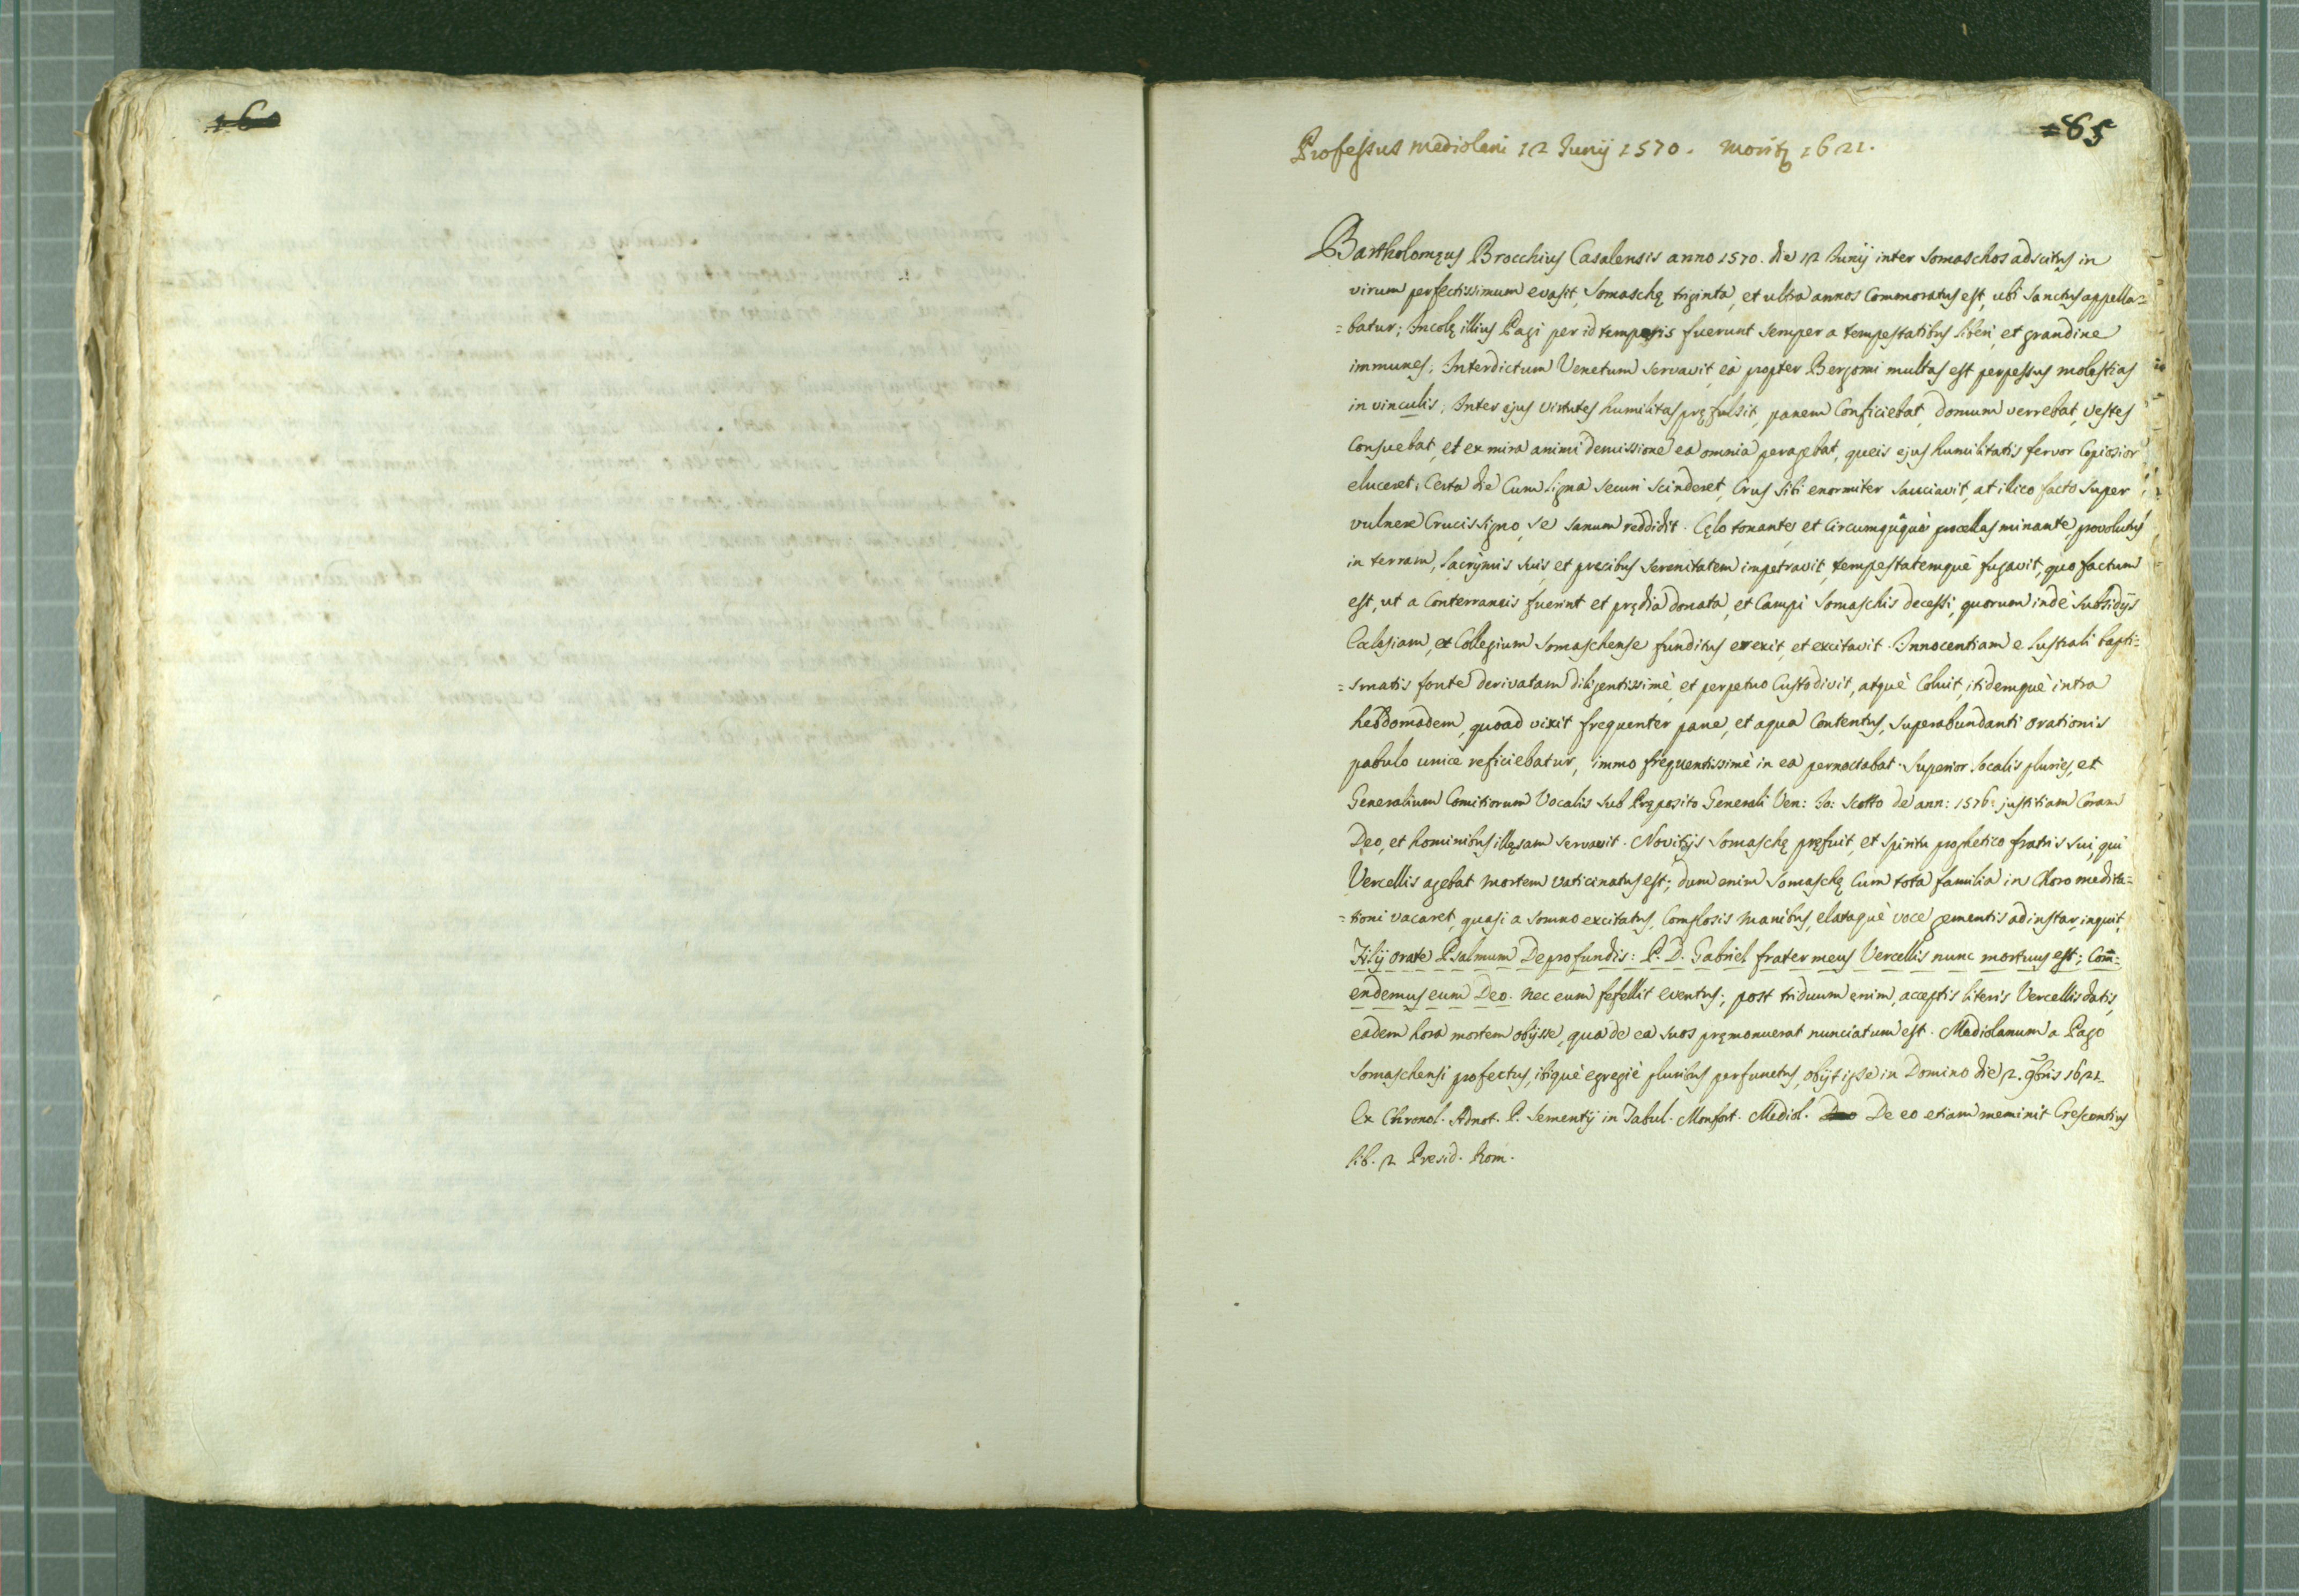 160
85
Professus Mediolani 12 Junij 1570. Moritz 1621.
Bartholomęus Brocchius Casalensis anno 1570. die 12 Junij inter Somaschos adscitus in
virum perfectissimum evasit, Somaschę triginta, et ultra annos Commoratus est, ubi Sanctus appella=
=batur; Incolę illius Pagi per id temporis fuerunt semper a tempestatibus liberi, et grandine
immunes. Interdictum Venetum servavit, eà propter Bergomi multas est perpessus molestias
in vinculis. Inter ejus virtutes humilitas pręfulsit, panem Conficiebat, domum verrebat, vestes
Consuebat, et ex mira animi demissione ea omnia peragebat, queis ejus humilitatis fervor Copiosior
eluceret. Certa die Cum ligna securi scinderet, Crus sibi enormiter sauciavit, at illico facto super
vulnere Crucis signo, se sanum reddidit. Cęlo tonante, et circumquàquè procellas minante, provolutus
in terram, lacrymis suis, et precibus serenitatem impetravit, tempestatemquè fugavit, quo factum
est, ut a Conterraneis fuerint et prędia donata, et Campi Somaschis decessi, quorum indè subsidijs
Ecclesiam, et Collegium Somaschense funditus erexit, et excitavit. Innocentiam e lustrali bapti=
=smatis fonte derivatam diligentissimè, et perpetuo Custodivit, atquè Coluit, itidemquè intra
hebdomadem, quoad vixit frequenter pane, et aqua Contentus, superabundanti orationis
pabulo unicè reficiebatur, immo frequentissimè in ea pernoctabat. Superior localis pluries, et
Generalium Comitiorum Vocalis sub Pręposito Generali Ven: Jo: Scotto de ann: 1576: justitiam Coram
Deo, et hominibus illęsam servavit. Novitijs Somaschę pręfuit, et spiritu prophetico fratris sui, qui
Vercellis agebat mortem vaticinatus est; dum enim Somaschę Cum tota familia in Choro medita=
=tioni vacaret, quasi a somno excitatus, Complosis manibus, elataquè voce gementis ad instar, inquit,
Filij orate Psalmum De profundis: P. D. Gabriel frater meus Vercellis nunc mortuus est; Com̄=
endemus eum Deo. Nec eum fefellit eventus; post triduum enim, acceptis literis Vercellis datis,
eadem hora mortem obijsse, qua de ea suos pręmonuerat nunciatum est. Mediolanum a Pago
Somaschensi profectus, ibiquè egregiè pluribus perfunctus, obijt ipse in Domino die 2. 9bris 1621.
Ex Chronol. Adnot. P. Sementij in Tabul. Monfort. Mediol. De eo etiam meminit Crescentius
lib. 2 Presid. Rom.